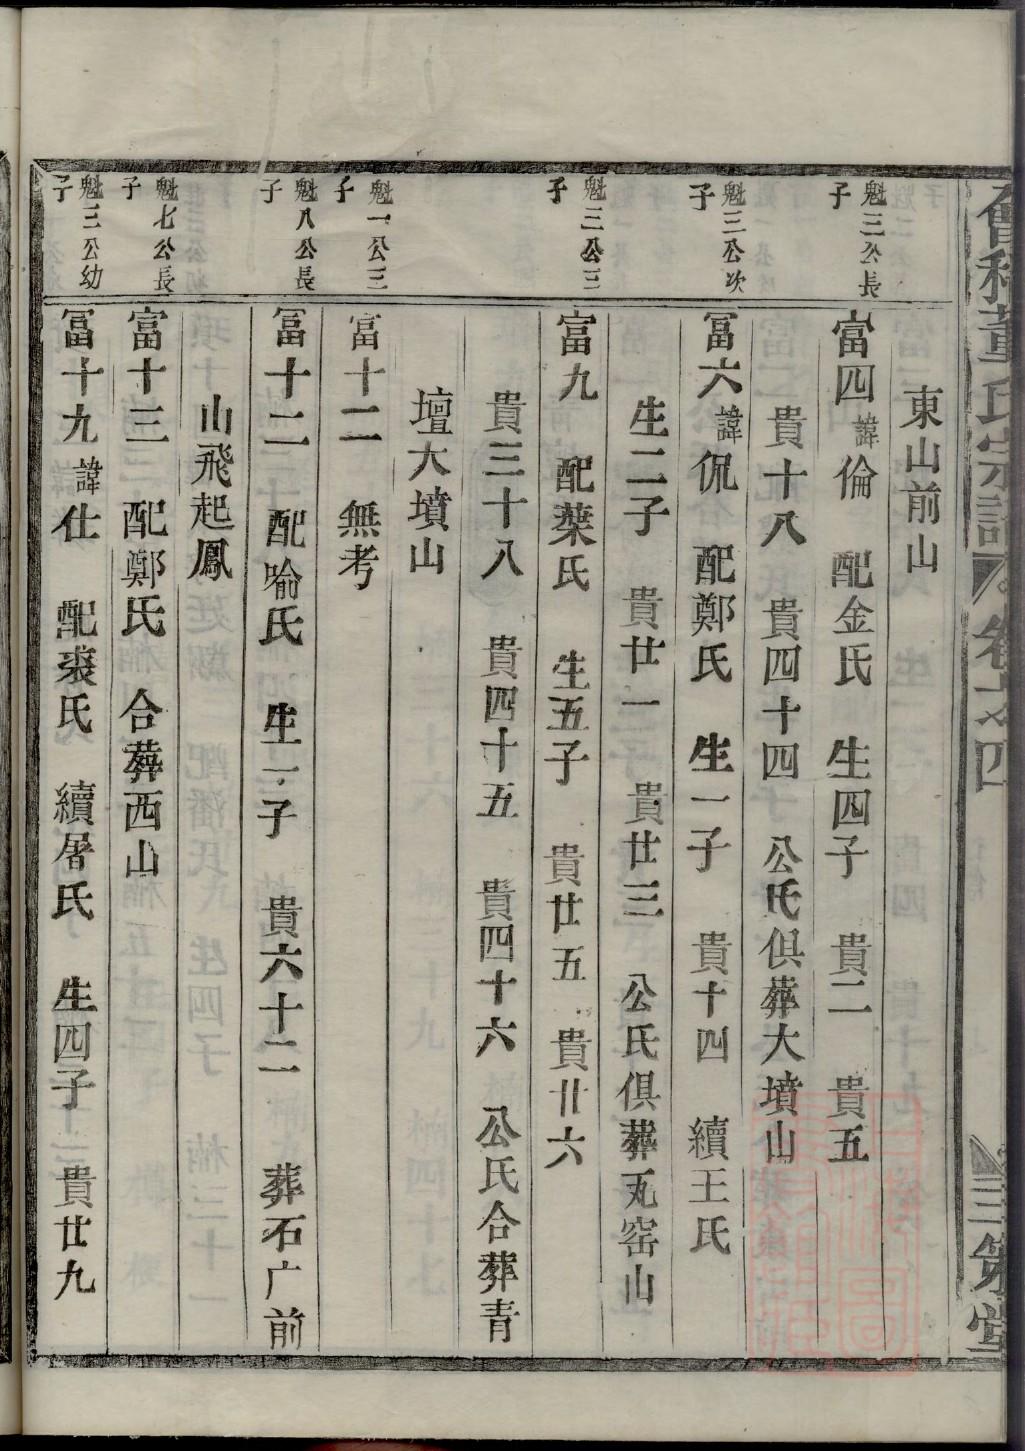 會稽董氏宗譜 卷之四 三策堂
東山前山
魁三公長子
富四 諱倫 配金氏 生四子 貴二 貴五
貴十八 貴四十四 公氏俱葬大墳山
魁三公次子
冨六 諱侃 配鄭氏 生一子 貴十四 續王氏
生二子 貴廿一 貴廿三 公氏俱葬瓦窑山
魁三公三子
富九 配葉氏 生五子 貴廿五 貴廿六
貴三十八 貴四十五 貴四十六 公氏合葬青
壇大墳山
魁一公三子
富十一 無考
魁八公長子
冨十二 配喻氏 生一子 貴六十二 葬石广前
山飛起鳳
魁七公長子
富十三 配鄭氏 合葬西山
魁三公幼子
冨十九 諱仕 配裘氏 續屠氏 生四子 貴廿九